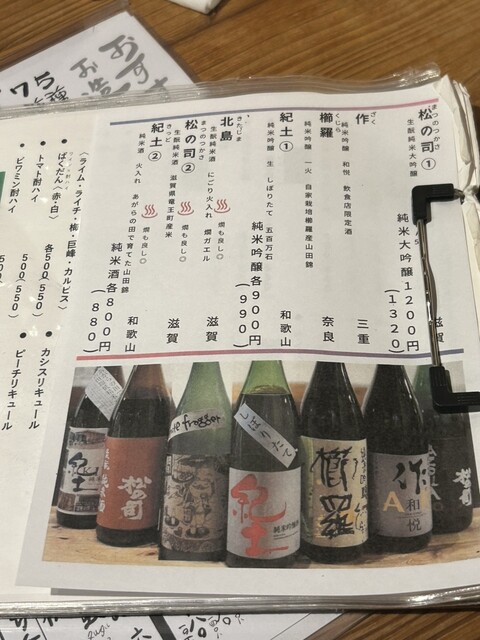 松の司①
まつのつかさ
生酛純米大吟醸
滋賀
純米大吟醸 1200円
(1320)
作
ざく
純米吟醸 和悦 飲食店限定酒
三重
櫛羅
くじら
純米吟醸 一火 自家栽培櫛羅産山田錦
奈良
紀土①
純米吟醸 生 しぼりたて 五百万石
和歌山
純米吟醸 各900円
(990)
北島
きたじま
生酛純米酒 にごり火入れ 燗ガエル
燗も良し◎
滋賀
松の司②
まつのつかさ
生酛純米酒 滋賀県竜王町産米
燗も良し◎
滋賀
紀土②
きっど
純米酒 火入れ あがらの田で育てた山田錦
燗も良し◎
和歌山
純米酒 各800円
(880)
〈ライム・ライチ・柿・巨峰・カルピス〉
●ばくだん〈赤・白〉
各500(550)
●トマト酎ハイ
500(550)
●ビワミン酎ハイ
500
●カシスリキュール
●ピーチリキュール
おすす
お造
75
紀土
松の司
純米酒
しぼりたて
紀土
純米吟醸酒
櫛羅
作
和悦